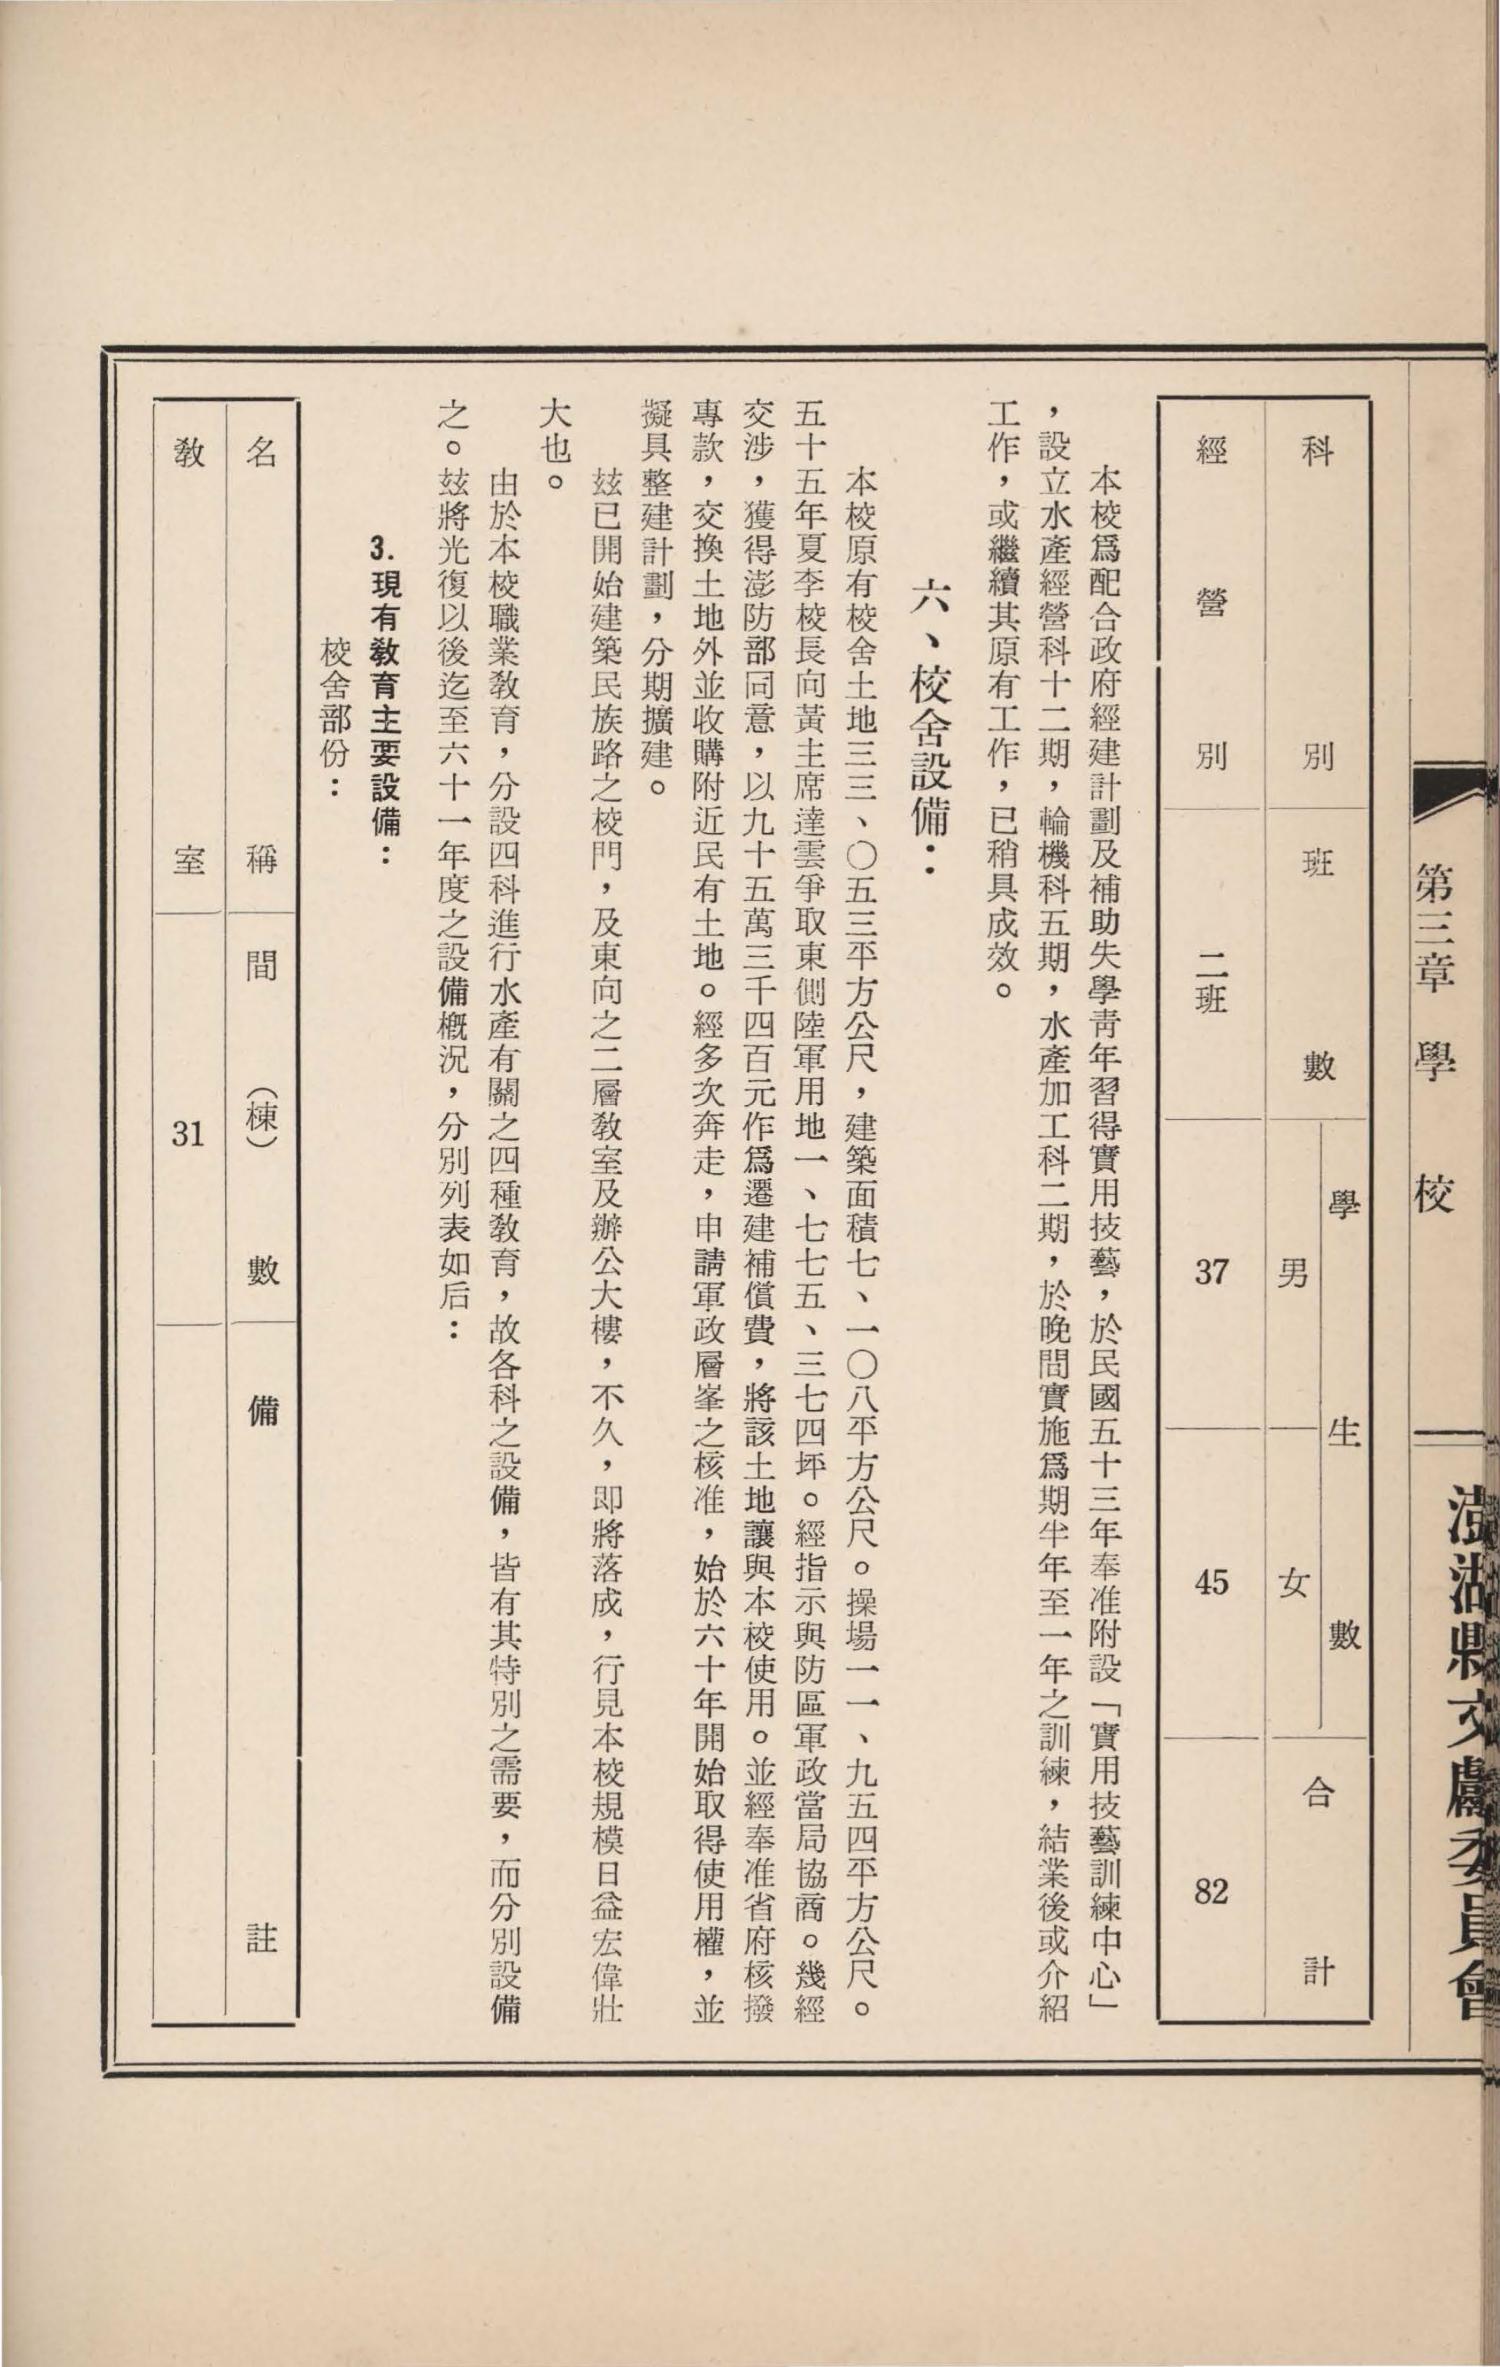 第三章　學　校
澎湖縣文獻委員會
科別　班數　學生數　合計
男　女
經營別　二班　37　45　82
本校爲配合政府經建計劃及補助失學青年習得實用技藝，於民國五十三年奉准附設「實用技藝訓練中心」
，設立水產經營科十二期，輪機科五期，水產加工科二期，於晚間實施爲期半年至一年之訓練，結業後或介紹
工作，或繼續其原有工作，已稍具成效。
六、校舍設備：
本校原有校舍土地三三、〇五三平方公尺，建築面積七、一〇八平方公尺。操場一一、九五四平方公尺。
五十五年夏李校長向黃主席達雲爭取東側陸軍用地一、七七五、三七四坪。經指示與防區軍政當局協商。幾經
交涉，獲得澎防部同意，以九十五萬三千四百元作爲遷建補償費，將該土地讓與本校使用。並經奉准省府核撥
專款，交換土地外並收購附近民有土地。經多次奔走，申請軍政層峯之核准，始於六十年開始取得使用權，並
擬具整建計劃，分期擴建。
茲已開始建築民族路之校門，及東向之二層教室及辦公大樓，不久，即將落成，行見本校規模日益宏偉壯
大也。
由於本校職業教育，分設四科進行水產有關之四種教育，故各科之設備，皆有其特別之需要，而分別設備
之。茲將光復以後迄至六十一年度之設備概況，分別列表如后：
3.現有教育主要設備：
校舍部份：
名稱　間（棟）數　備註
教室　31